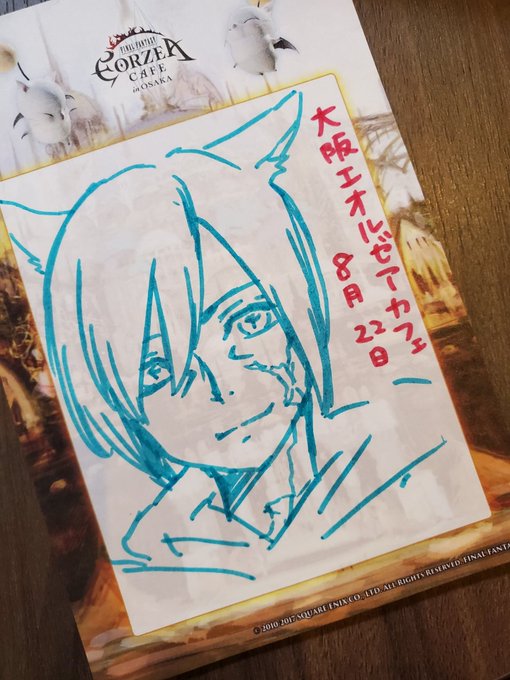 FINAL FANTASY
EORZEA
CAFE
in OSAKA
大阪エオルゼアカフェ
8月22日
© 2010 2017 SQUARE ENIX CO., LTD. ALL RIGHTS RESERVED. FINAL FANTA